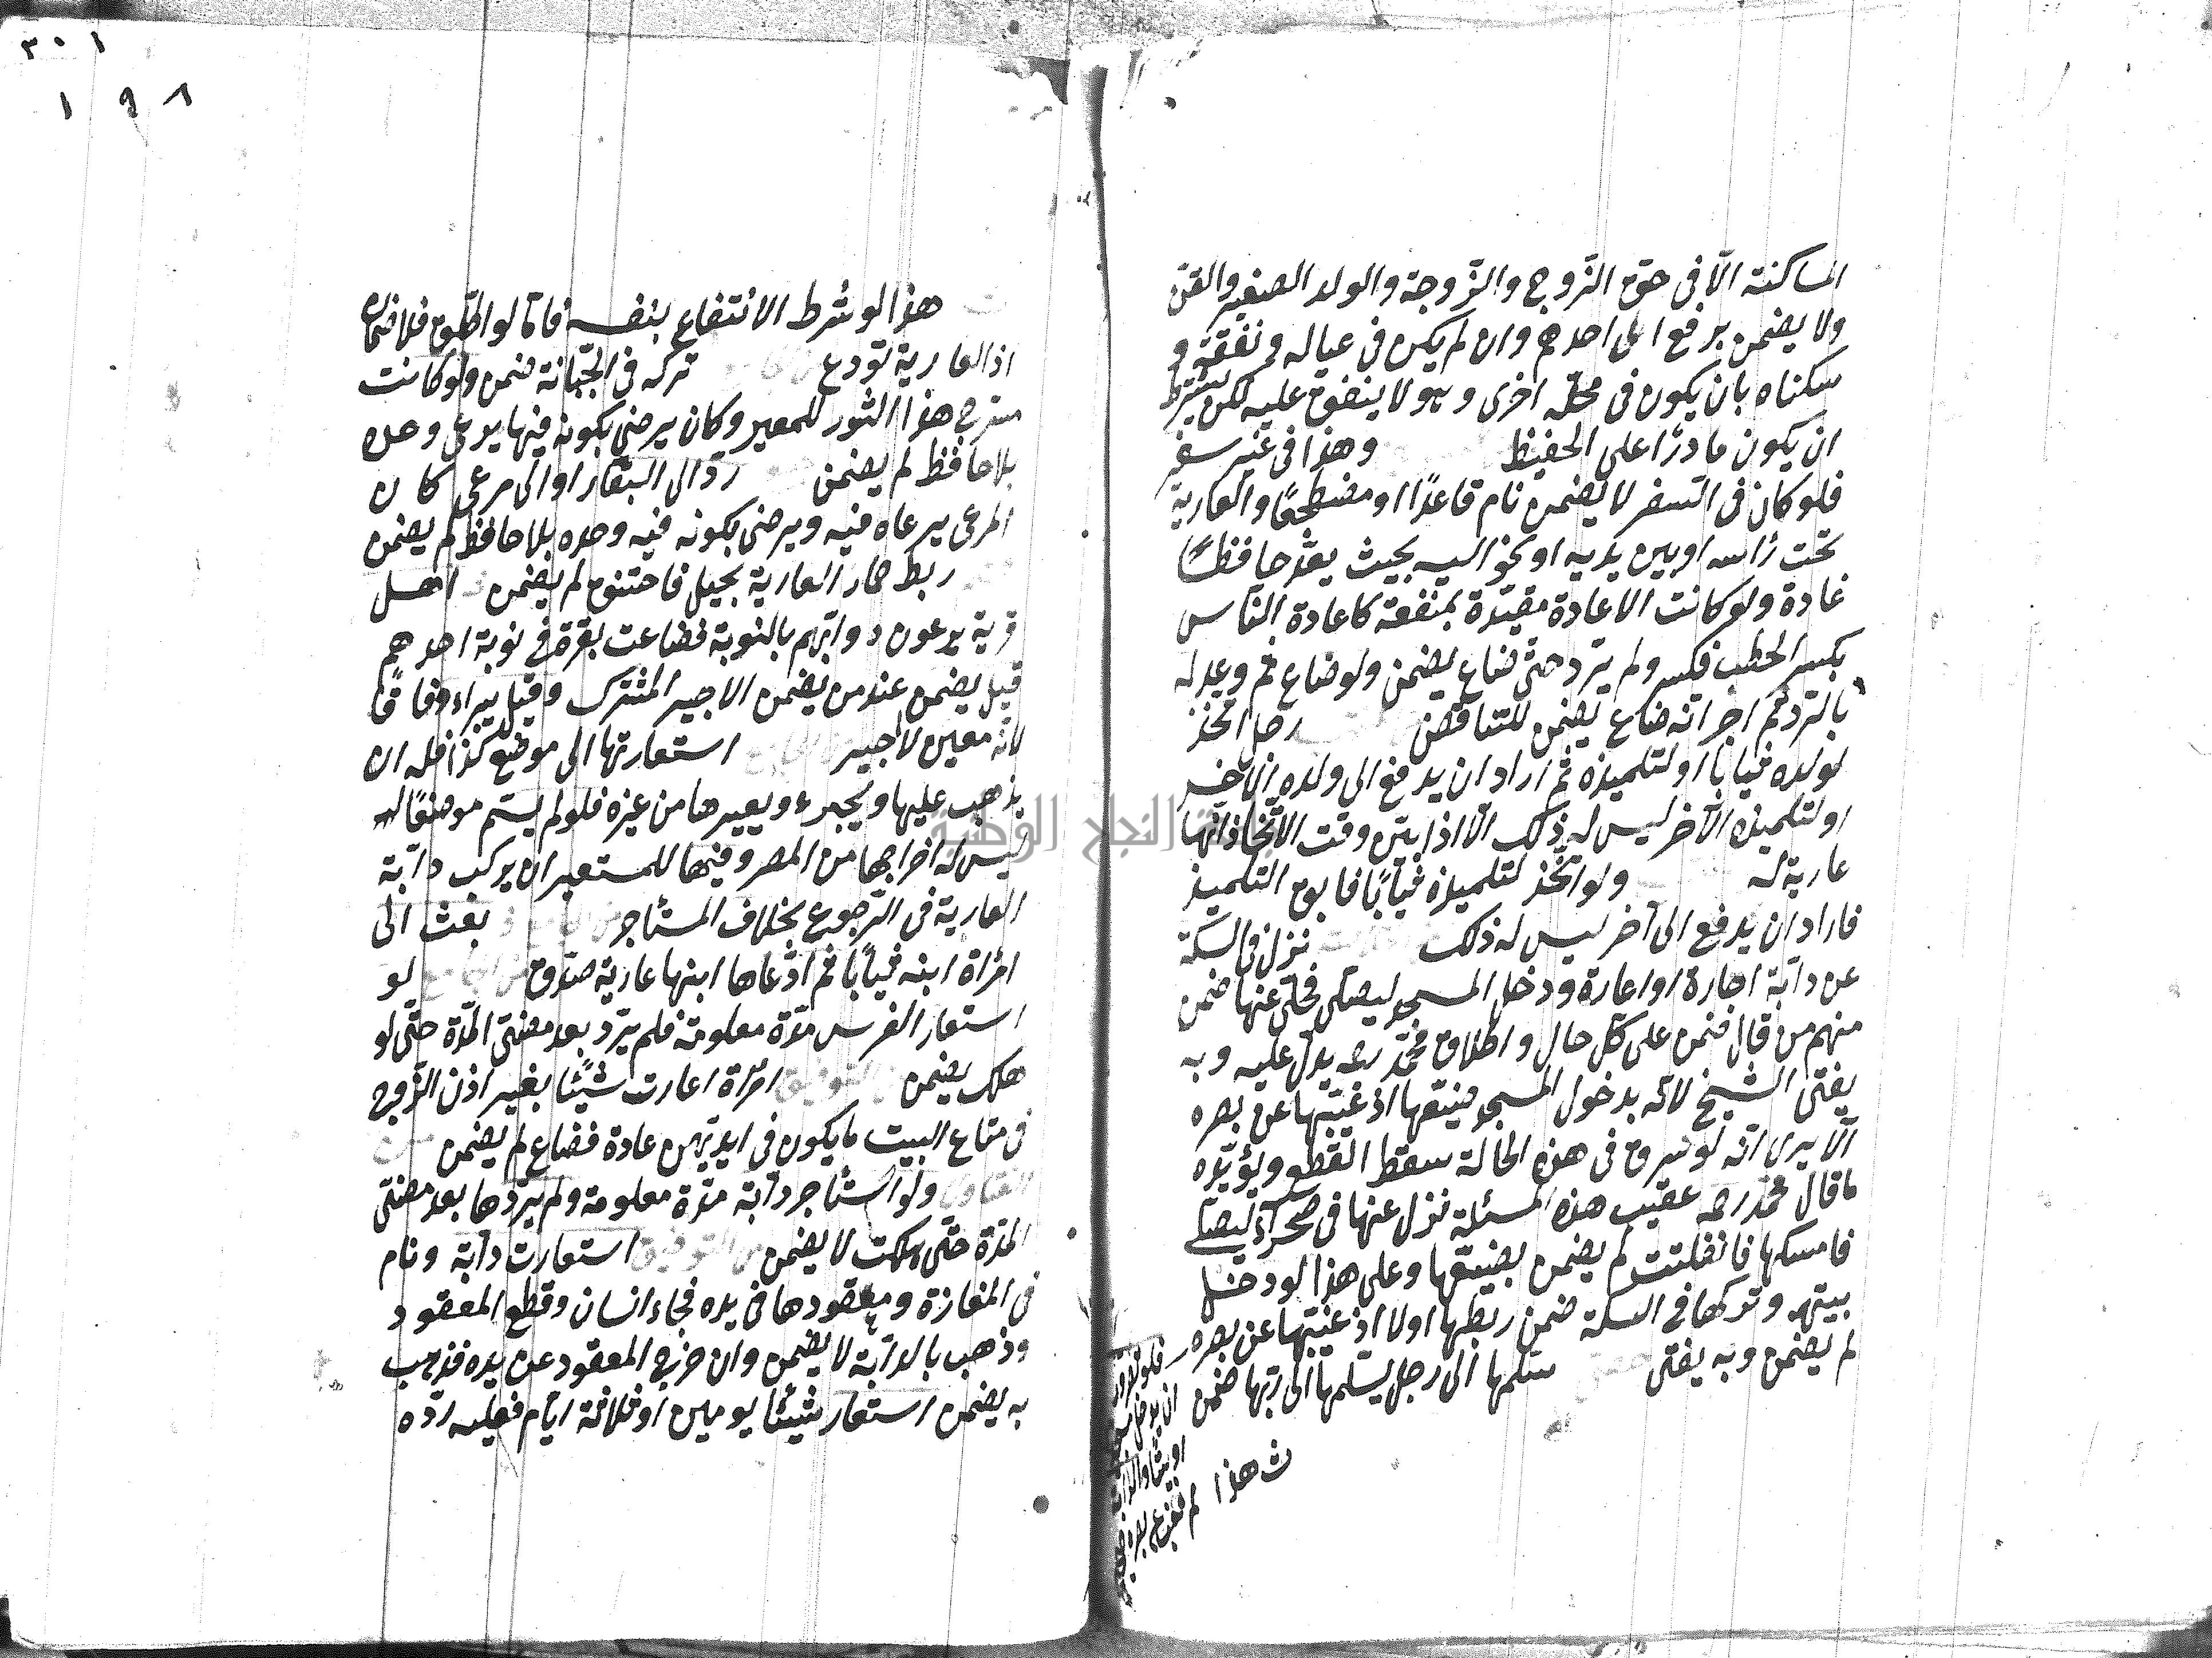 المساكنة الّا فى حقّ الزّوج والزّوجة والولد الصغير والقنّ
ولا يضمن بدفع الى احدهم وان لم يكن فى عياله ونفقته و
سكناه بان يكون فى محلّه اخرى وهو لا ينفق عليه لكن يشترط
ان يكون قادرًا على الحفظ وهذا فى غير سفر
فلو كان فى السّفر لا يضمن نام قاعدًا او مضطجعًا والعارية
تحت رأسه او بين يديه او نحو اليه بحيث يعدّ حافظًا
عادة ولو كانت الاعارة مقيّدة بمنفعة كاعادة النّاس
بكسر الحطب فكسر ولم يردّ حتّى ضاع يضمن ولو ضاع ثم وعد له
بالردّ ثم اخبر انّه ضاع يضمن للتناقض رجل اتّخذ
لولده ثيابا او لتلميذه ثم اراد ان يدفع الى ولده الآخر
او لتلميذه الآخر ليس له ذلك الّا اذا بيّن وقت الاتّخاذ انّها
عارية له ولو اتّخذ لتلميذه ثيابًا فابق التلميذ
فاراد ان يدفع الى آخر ليس له ذلك نزل فى السكّة
عن دابّة اجارة او اعارة ودخل المسجد ليصلّى فخلّى عنها ضمن
منهم من قال ضمن على كلّ حال واطلاق محمّد رحه يدلّ عليه وبه
يفتى الشيخ لانّه بدخول المسجد ضيّعها اذ غيّبها عن بصره
ألا يرى انّه لو سرق فى هذه الحالة سقط القطع ويؤيّده
ما قال محمّد رحه عقيب هذه المسئلة نزل عنها فى صحراء ليصلّى
فامسكها فانفلتت لم يضمن بضيّعها وعلى هذا لو دخل
بيته وتركها فى السكة ضمن ربطها اولا اذ غيّبها عن بصره
لم يضمن وبه يفتى سلّمها الى رجل يسلّمها الى ربّها ضمن
هذا
هذا لو شرط الانتفاع بنفسه فامّا لو اطلق فلا ضمان
اذ العارية تودع تركه فى الجبّانة ضمن ولو كانت
مسرح هذا الثور للمعير وكان يرضى بكونه فيها يرعى وحده
بلا حافظ لم يضمن ردّ الى البقّار او الى مرعى كان
المرعى يرعاه فيه ويرضى بكونه فيه وحده بلا حافظ لم يضمن
ربط حمار العارية بحبل فاختنق لم يضمن اهل
قرية يرعون دوابّهم بالنوبة فضاعت بقرة فى نوبة احدهم
قيل يضمن عند من يضمن الاجير المشترك وقيل يبراء وفاقًا
لانّه معين لا اجير استعارتها الى موضع كذا فله ان
يذهب عليها ويجىء ويعيرها من غيره فلو لم يسمّ موضعًا له
ليس له اخراجها من المصر وفيها للمستعير ان يركب دابّة
العارية فى الرجوع بخلاف المستأجر بعث الى
امرأة ابنه ثيابًا ثم ادّعاها ابنها عارية صدّق لو
استعار الفرس مدّة معلومة فلم يردّ بعد مضىّ المدّة حتّى لو
هلك يضمن امرأة اعارت شيئًا بغير اذن الزّوج
فى متاع البيت ما يكون فى ايديهن عادة فضاع لم يضمن
ولو استأجر دابّة مدّة معلومة ولم يردّها بعد مضىّ
المدّة حتّى هلكت لا يضمن استعارت دابّة ونام
فى المفازة ومقودها فى يده فجاء انسان وقطع المقود
وذهب بالدابّة لا يضمن وان خرج المقود عن يده فذهب
به يضمن استعار شيئًا يومين او ثلاثة ايّام فعليه ردّه
٣٠١
١٩٨
جامعة النجاح الوطنية